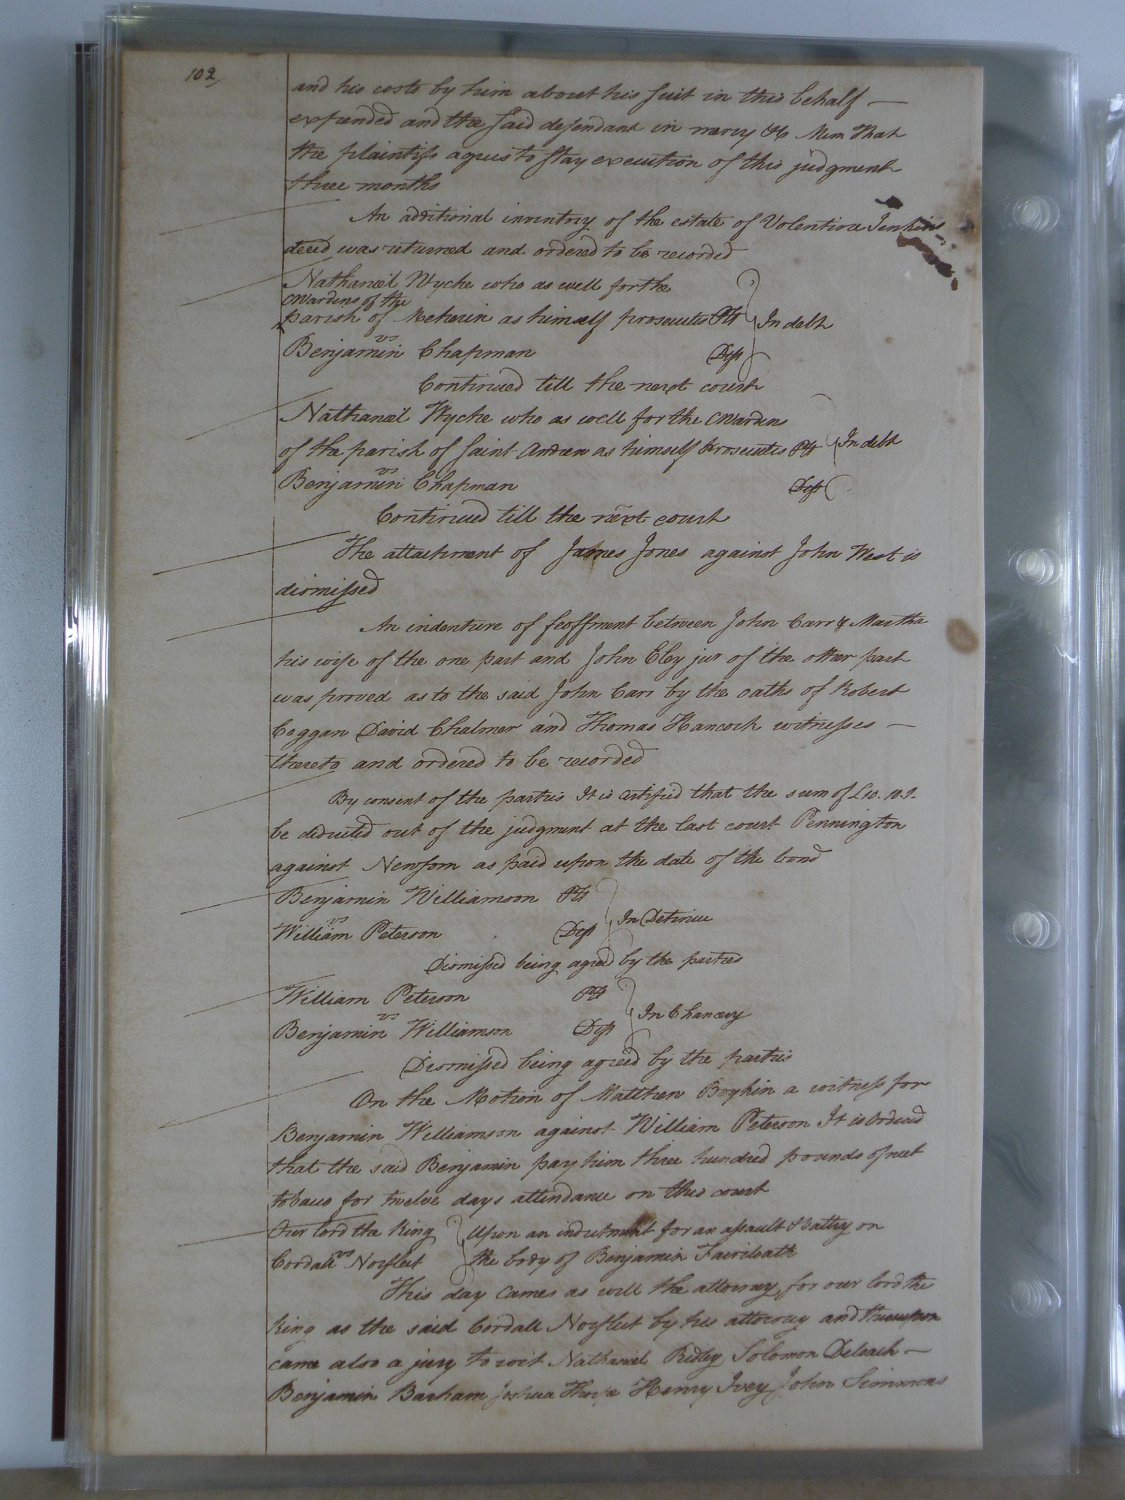 102
and his costs by him about his suit in this behalf —
expended and the said defendant in mercy &c Mem That
the plaintiffs agrees to stay execution of this judgment
three months
An additional inventory of the estate of Volentine Jenkins
deced was returned and ordered to be recorded
Nathaneel Wyche who as well for the
CWardens of the
parish of Meherin as himself prosecutes Plt } In debt
vs
Benjamin Chapman Deft
Continued till the next court
Nathaneel Wyche who as well for the CWardens
of the parish of Saint Andrew as himself prosecutes Plt } In debt
vs
Benjamin Chapman Deft
Continued till the next court
The attachment of James Jones against John West is
dismissed
An indenture of feoffment between John Carr & Martha
his wife of the one part and John Eley jur of the other part
was proved as to the said John Carr by the oaths of Robert
Coggan David Chalmer and Thomas Hancock witnesses —
thereto and ordered to be recorded
By consent of the parties It is certified that the sum of
be deducted out of the judgment at the last court Pennington
against Newsom as paid upon the date of the bond
Benjamin Williamson Plt } In Detinue
vs
William Peterson Deft
Dismissed being agreed by the parties
William Peterson Plt } In Chancery
vs
Benjamin Williamson Deft
Dismissed being agreed by the parties
On the Motion of Matthew Boykin a witness for
Benjamin Williamson against William Peterson It is Ordered
that the said Benjamin pay him three hundred pounds of neet
tobacco for twelve days attendance on this court
Our lord the King } Upon an indictment for an assault & battry on
vs
Cordall Norfleet the body of Benjamin Faircloath
This day Cames as well the attorney for our lord the
King as the said Cordall Norfleet by his attorney and thereupon
came also a jury to wit Nathaniel Ridley Solomon Deloach —
Benjamin Barham Joshua Thorp Henry Ivey John Simmons